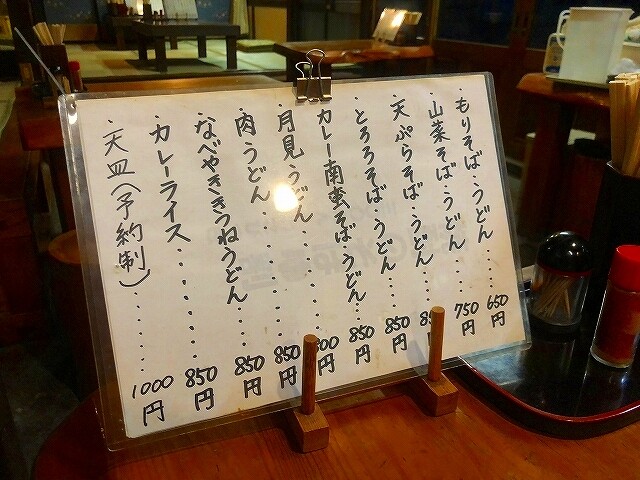 ・もりそば・うどん……650円
・山菜そば・うどん……750円
・天ぷらそば・うどん……
・とろろそば・うどん……850円
・カレー南蛮そば・うどん……850円
・月見うどん……00円
・肉うどん……850円
・なべやききつねうどん……850円
・カレーライス……850円
・天皿(予約制)……1000円